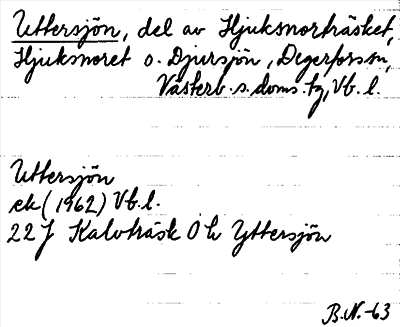 Uttersjön, del av Hjuksnorträsket,
Hjuksnoret o. Djursjön, Degerfors sn,
Västerb. s. doms. tg, Vb. l.
Uttersjön
ek (1962) Vb. l.
22 J Kalvträsk Ö h Yttersjön
B.N.-63